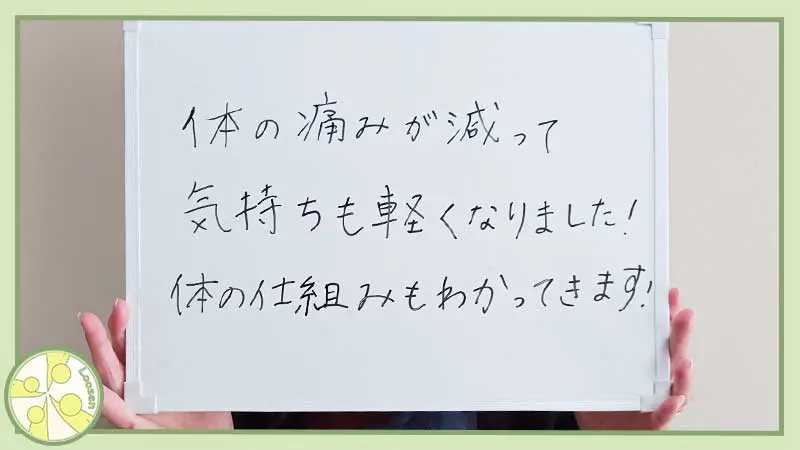 体の痛みが減って
気持ちも軽くなりました!
体の仕組みもわかってきます!
Loosen